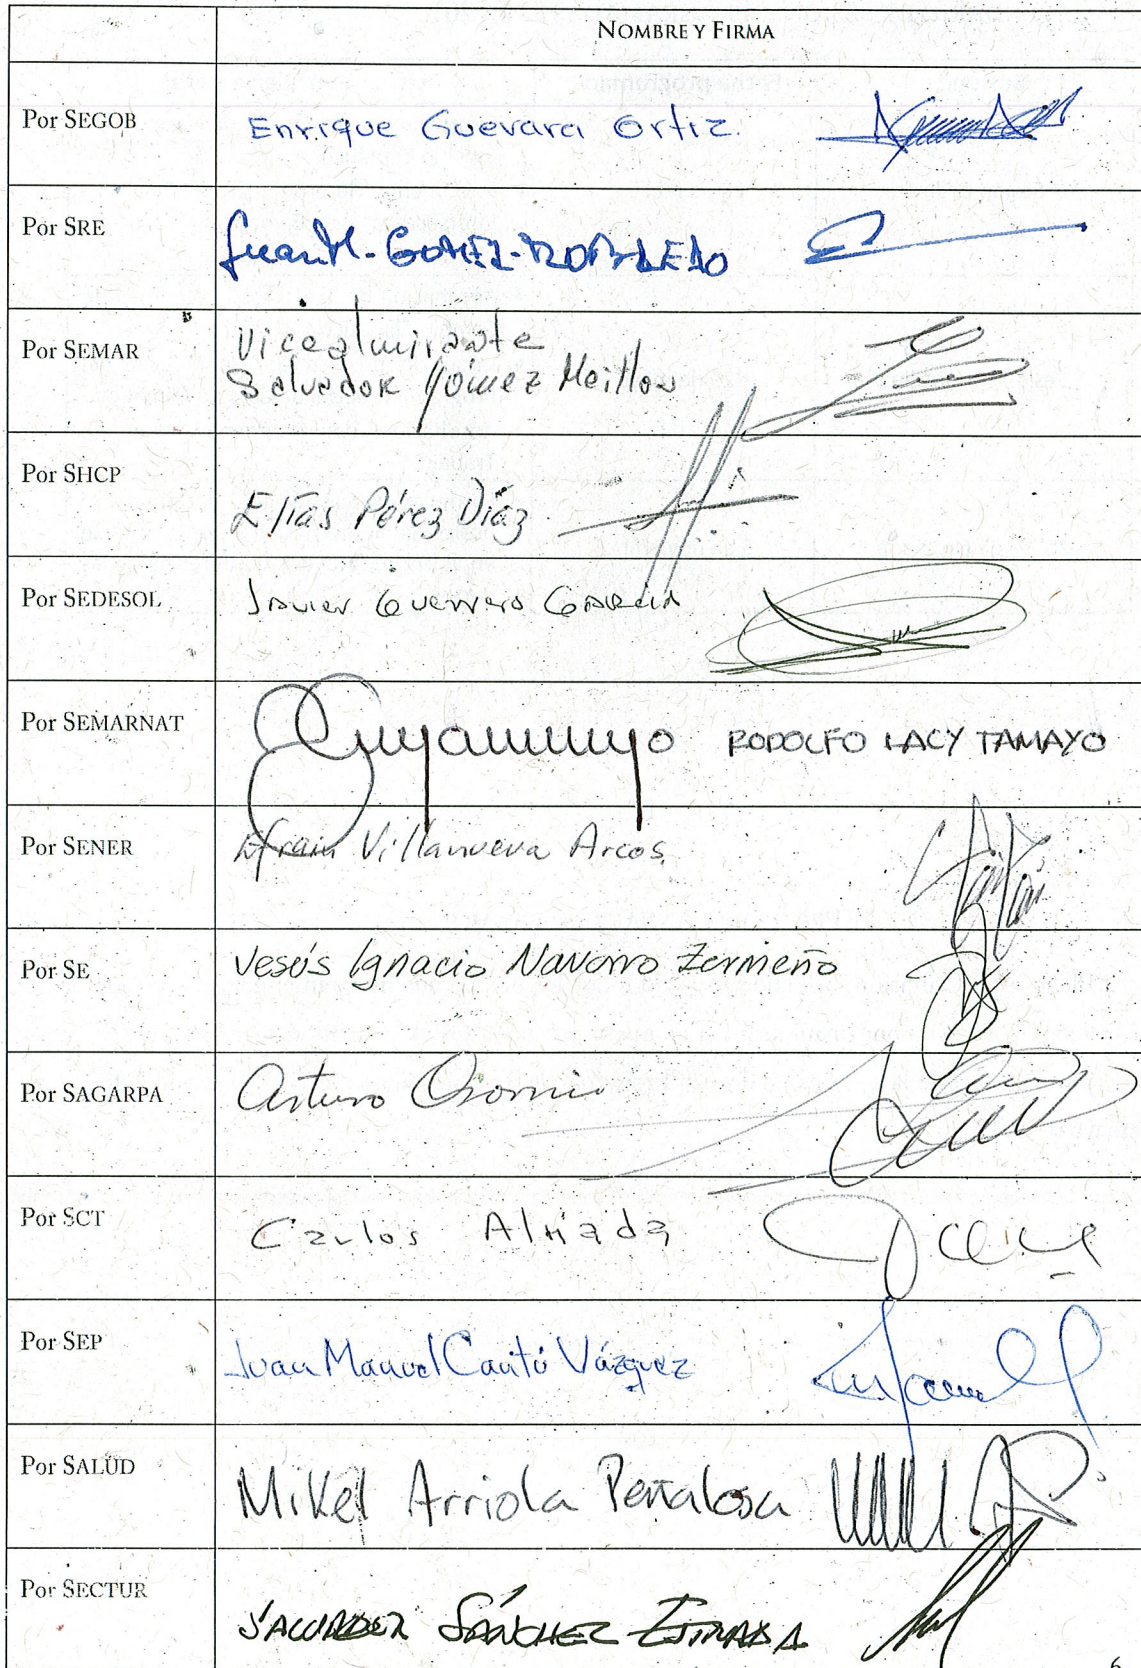 NOMBRE Y FIRMA
Por SEGOB
Enrique Guevara Ortiz
Por SRE
Juan M. GOMEZ-ROBLEDO
Por SEMAR
Vicealmirante
Salvador Gómez Meillon
Por SHCP
Elías Pérez Díaz
Por SEDESOL
Javier Guerrero García
Por SEMARNAT
RODOLFO LACY TAMAYO
Por SENER
Efrain Villanueva Arcos
Por SE
Jesús Ignacio Navarro Zermeño
Por SAGARPA
Arturo Osornio
Por SCT
Carlos Almada
Por SEP
Juan Manuel Cantú Vázquez
Por SALUD
Mikel Arriola Peñalosa
Por SECTUR
SALVADOR SÁNCHEZ ESTRADA
6